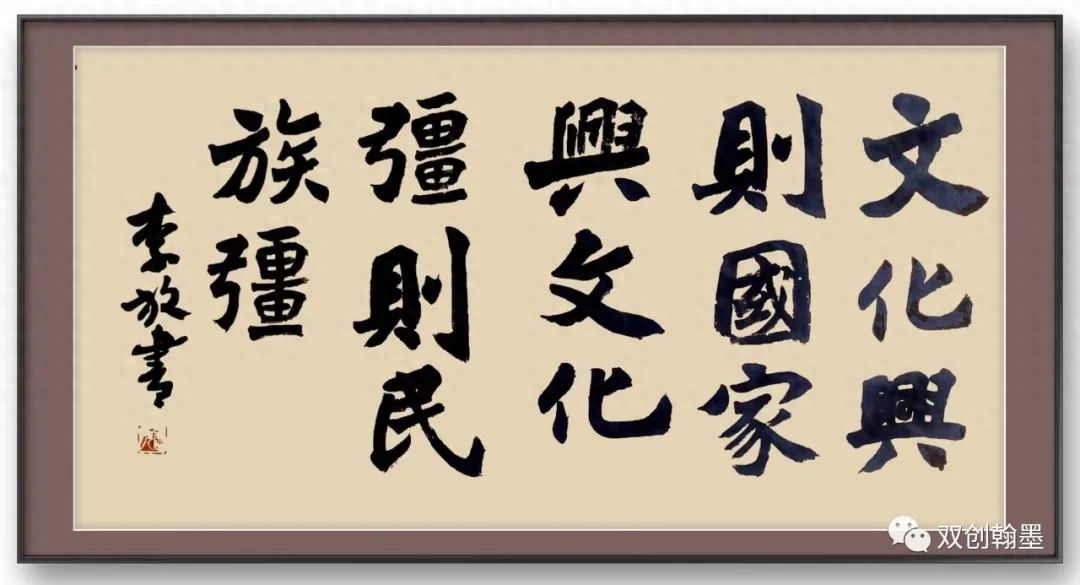 文化興
則國家
興文化
彊則民
族彊
李放書
双创翰墨